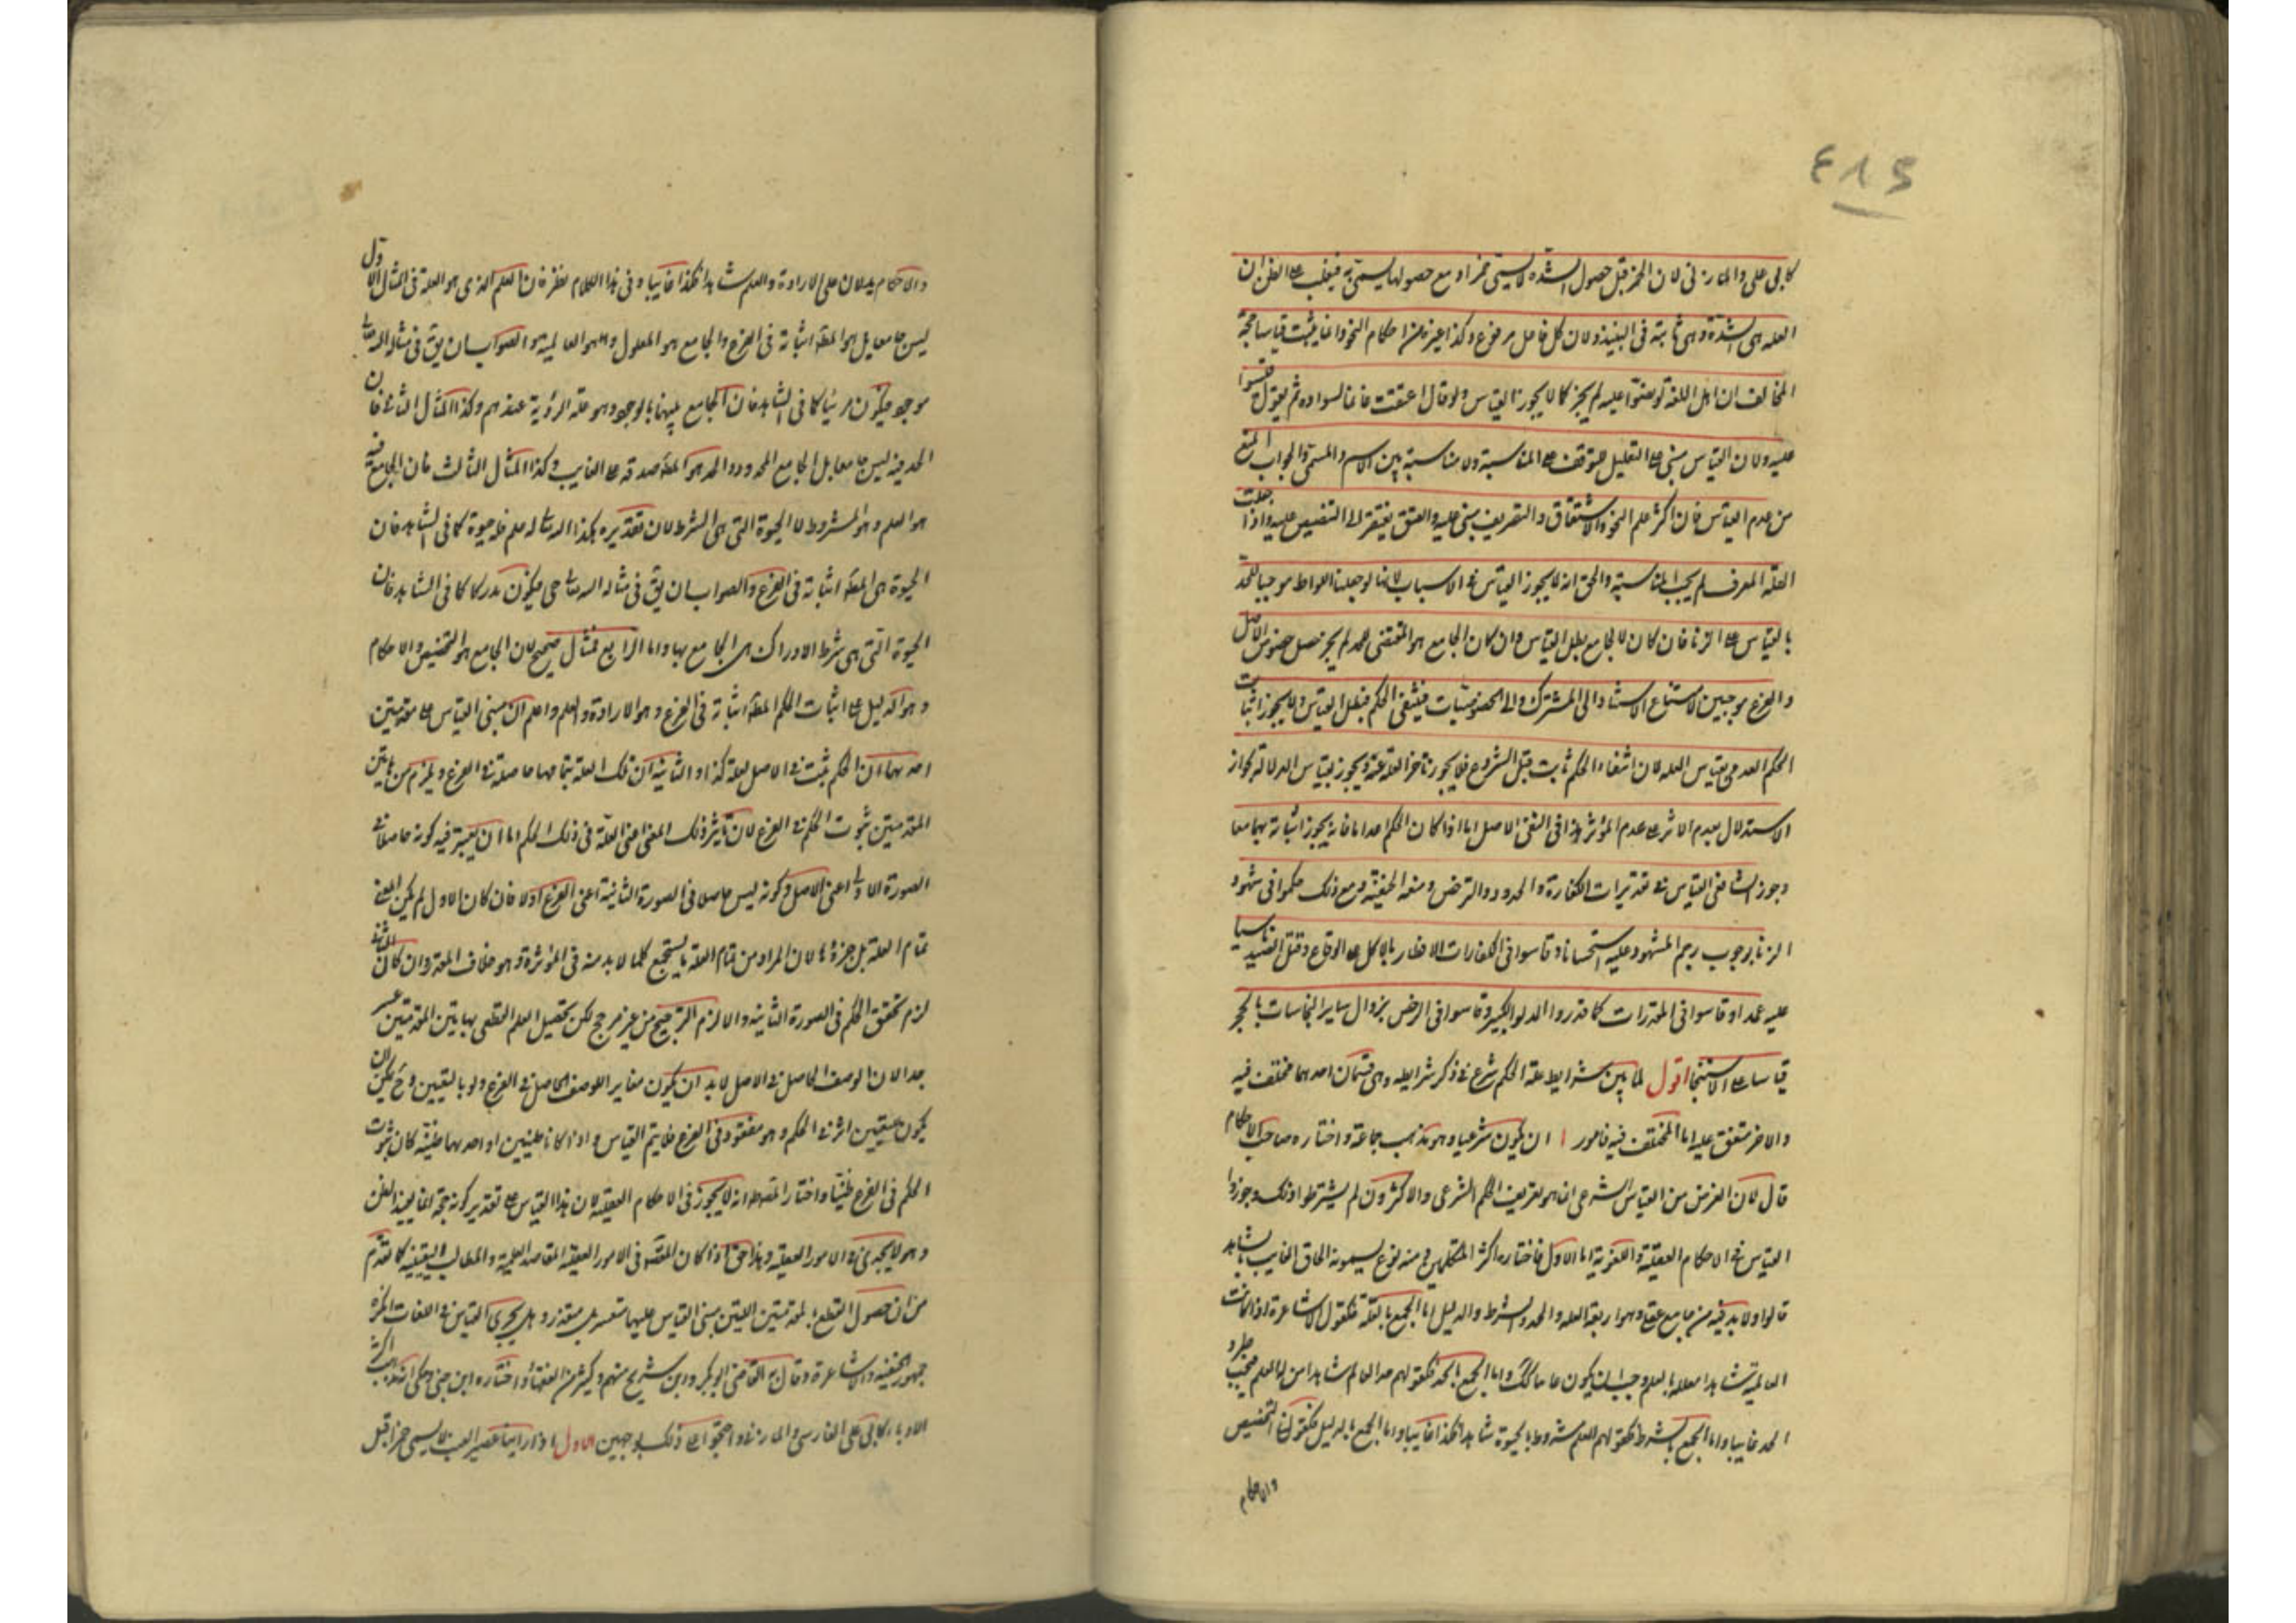 ٤١٥
كابى على والمازنى لان الخمر قبل حصول الشدة لا يسمى خمرا ومع حصولها يسمى به فيغلب على الظن ان
العله هى الشدة وهى ثابتة فى النبيذ ولان كل فاعل مرفوع وكذا غيره من احكام النحو وانما ثبت قياسا حجة
المخالف ان اهل اللغة لو نصوا عليه لم يجز كما لا يجوز القياس ولو قال اعتقت غانما لسواده ثم يقول قيسوا
عليه ولان القياس مبنى على التعليل المتوقف على المناسبة ولا مناسبة بين الاسم والمسمى والجواب المنع
من عدم القياس فان اكثر علم النحو والاشتقاق والتصريف مبنى عليه والعتق يفتقر الى التنصيص عليه واذا جعلت
العلة المعرف لم يجب المناسبة والحق انه لا يجوز القياس فى الاسباب لانا لو جعلنا اللواط موجبا للحد
بالقياس على الزنا فان كان لا لجامع بطل القياس وان كان الجامع هو المقتضى للحد لم يجز جعل خصوص الاصل
والفرع موجبين لامتناع الاستناد الى المشترك والى الخصوصيات فينتفى الحكم فبطل القياس ولا يجوز اثبات
الحكم العدمى بقياس العله لان انتفاء الحكم ثابت قبل الشروع فلا يجوز تاخر العلة عنه ويجوز بقياس الدلالة لجواز
الاستدلال بعدم الاثر على عدم المؤثر هذا فى النفى الاصلى اما اذا كان الحكم اعداما فانه يجوز اثباته بهما معا
وجوز الشافعى القياس فى تقديرات الكفارة والحدود والترخص ومنعه الحنفية ومع ذلك حكموا فى شهود
الزنا بوجوب رجم المشهود عليه استحسانا وقاسوا فى الكفارات الافطار بالاكل على الوقاع وقتل الصيد ناسيا
عليه عمدا وقاسوا فى المقدرات كما قدروا الدلو والبئر وقاسوا فى الرخص بزوال ساير النجاسات بالحجر
قياسا على الاستنجا اقول لما بين شرايط علة الحكم شرع فى ذكر شرايطه وهى قسمان احدهما مختلف فيه
والاخر متفق عليه اما المختلف فيه فامور ا ان يكون شرعيا وهو مذهب جماعة واختاره صاحب الاحكام
قال لان الغرض من القياس الشرعى انما هو تعريف الحكم الشرعى والاكثرون لم يشترطوا ذلك وجوزوا
القياس فى الاحكام العقلية واللغوية اما الاول فاختاره اكثر المتكلمين ومنه نوع يسمونه الحاق الغايب بالشاهد
قالوا ولا بد فيه من جامع عقلى وهو اربعة العله والحد والشرط والدليل اما الجمع بالعلة فكقول الاشاعرة اذا كانت
العالمية شاهدا معللة بالعلم وجب ان يكون غايبا كك واما الجمع بالحد فكقولهم حد العالم شاهدا من له العلم فيجب طرد
الحد غايبا واما الجمع بالشرط فكقولهم العلم مشروط بالحيوة شاهدا فكذا غايبا واما الجمع بالدليل فكقولنا التخصيص
والاحكام
والاحكام يدلان على الارادة والعلم شاهدا فكذا غايبا وفى هذا الكلام نظر فان العلم الذى هو العلة فى المثال الاول
ليس جامعا بل هو المطلوب اثباته فى الفرع والجامع هو المعلول وهو العالمية والصواب ان يق فى مثاله الله تعالى
موجود فيكون مرئيا كما فى الشاهد فان الجامع بينهما بالوجود وهو علة الرؤية عندهم وكذا المثال الثانى فان
الحد فيه ليس جامعا بل الجامع المحدود والحد هو المط صدقه على الغايب وكذا المثال الثالث فان الجامع فيه
هو العلم وهو المشروط لا الحيوة التى هى الشرط لان تقديره هكذا الله تعالى له علم فله حيوة كما فى الشاهد فان
الحيوة هى المط اثباته فى الفرع والصواب ان يق فى مثاله الله تعالى حى فيكون مدركا كما فى الشاهد فان
الحيوة التى هى شرط الادراك هى الجامع بها واما الرابع فمثال صحيح لان الجامع هو التخصيص والاحكام
وهو الدليل على اثبات الحكم المط اثباته فى الفرع وهو الارادة والعلم واعلم ان مبنى القياس على مقدمتين
احدهما ان الحكم ثبت فى الاصل لعلة كذا والثانية ان تلك العلة بتمامها حاصلة فى الفرع ويلزم من هاتين
المقدمتين ثبوت الحكم فى الفرع لان تاثير ذلك المعنى اعنى العلة فى ذلك الحكم اما ان يعتبر فيه كونه حاصلا فى
الصورة الاولى اعنى الاصل وكونه ليس حاصلا فى الصورة الثانية اعنى الفرع او لا فان كان الاول لم يكن المعنى
تمام العلة بل جزؤها لان المراد من تمام العلة ما يستجمع كلما لا بد منه فى المؤثرة وهو خلاف المقدر وان كان الثانى
لزم تحقق الحكم فى الصورة الثانية والا لزم الترجيح من غير مرجح لكن تحصيل العلم القطعى بهاتين المقدمتين عسر
جدا لان الوصف الحاصل فى الاصل لا بد ان يكون مغايرا للوصف الحاصل فى الفرع ولو بالتعيين وح يمكن ان
يكون للتعيين اثر فى الحكم وهو مفقود فى الفرع فلا يتم القياس واذا كانا ظنيتين او احدهما ظنية كان ثبوت
الحكم فى الفرع ظنيا واختار المصنف انه لا يجوز فى الاحكام العقلية لان هذا القياس على تقدير كونه حجة انما يفيد الظن
وهو لا يجدى فى الامور العقلية وهذا حق اذا كان المقصود فى الامور العقلية المقاصد العلمية والمطالب اليقينية كما تقدم
من ان حصول القطع بالمقدمتين اللتين مبنى القياس عليهما متعسر بل متعذر وهل يجرى القياس فى اللغات انكره
جمهور الحنفية والاشاعرة وقال به القاضى ابو بكر وابن شريح منهم وكثير من الفقهاء واختاره ابن جنى وحكى انه مذهب اكثر
الادباء كابى على الفارسى والمازنى واحتجوا على ذلك بوجهين الاول انا رأينا عصير العنب لا يسمى خمرا قبل